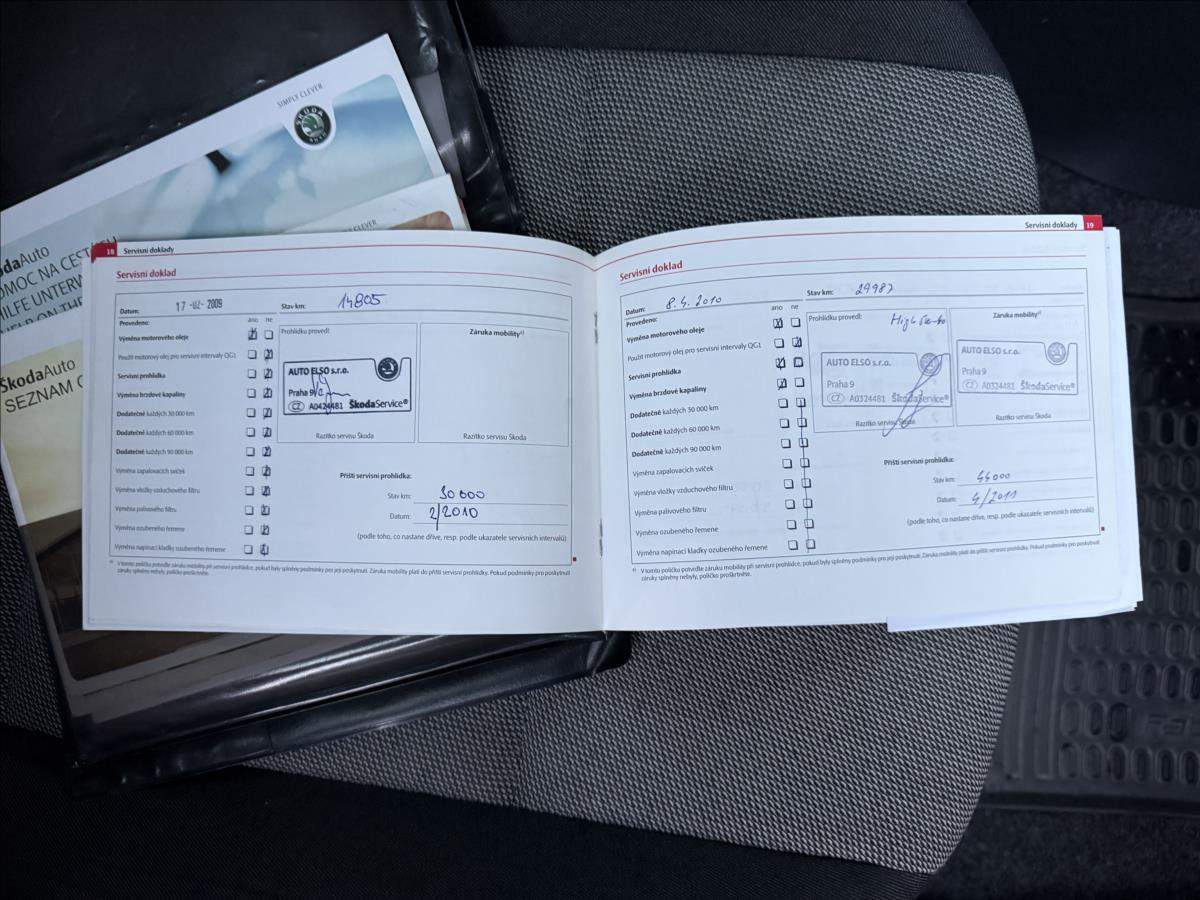 SIMPLY CLEVER
ŠKODA
ŠkodaAuto
SEZNAM
18 Servisní doklady
Servisní doklad
Datum: 17 -02- 2009 Stav km: 14805
Provedeno: ano ne
Výměna motorového oleje
Použit motorový olej pro servisní intervaly QG1
Servisní prohlídka
Výměna brzdové kapaliny
Dodatečně každých 30 000 km
Dodatečně každých 60 000 km
Dodatečně každých 90 000 km
Výměna zapalovacích svíček
Výměna vložky vzduchového filtru
Výměna palivového filtru
Výměna ozubeného řemene
Výměna napínací kladky ozubeného řemene
Prohlídku provedl:
AUTO ELSO s.r.o.
Praha 9
CZ A0424481 ŠkodaService®
Razítko servisu Škoda
Záruka mobility a)
Razítko servisu Škoda
Příští servisní prohlídka:
Stav km: 30 000
Datum: 2/2010
(podle toho, co nastane dříve, resp. podle ukazatele servisních intervalů)
a) V tomto políčku potvrďte záruku mobility při servisní prohlídce, pokud byly splněny podmínky pro její poskytnutí. Záruka mobility platí do příští servisní prohlídky. Pokud podmínky pro poskytnutí
záruky splněny nebyly, políčko proškrtněte.
Servisní doklady 19
Servisní doklad
Datum: 8.4.2010 Stav km: 29987
Provedeno: ano ne
Výměna motorového oleje
Použit motorový olej pro servisní intervaly QG1
Servisní prohlídka
Výměna brzdové kapaliny
Dodatečně každých 30 000 km
Dodatečně každých 60 000 km
Dodatečně každých 90 000 km
Výměna zapalovacích svíček
Výměna vložky vzduchového filtru
Výměna palivového filtru
Výměna ozubeného řemene
Výměna napínací kladky ozubeného řemene
Prohlídku provedl:
AUTO ELSO s.r.o.
Praha 9
CZ A0324481 ŠkodaService®
Razítko servisu Škoda
Záruka mobility a)
AUTO ELSO s.r.o.
Praha 9
CZ A0324481 ŠkodaService®
Razítko servisu Škoda
Příští servisní prohlídka:
Stav km: 44000
Datum: 4/2011
(podle toho, co nastane dříve, resp. podle ukazatele servisních intervalů)
a) V tomto políčku potvrďte záruku mobility při servisní prohlídce, pokud byly splněny podmínky pro její poskytnutí. Záruka mobility platí do příští servisní prohlídky. Pokud podmínky pro poskytnutí
záruky splněny nebyly, políčko proškrtněte.